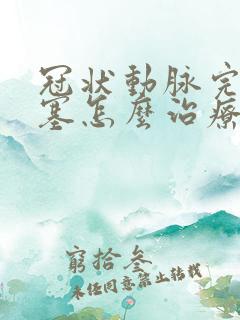 冠状動脉完
塞怎麼治療
窮拾叁
未经同意禁止转载